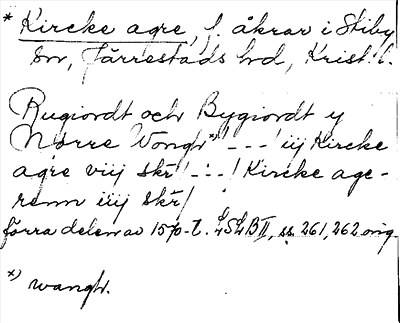 * Kircke agre, f. åkrar i Stiby
sn, Järrestads hd, Krist. l.
Rugiordt och Bygiordt y
Nörre Wongr *) - - - iij Kircke
agre viij skr! - - - ! Kircke age-
renn iiij skr /
förra delen av 1570-t. LSLB II, ss. 261, 262 orig.
*) wangr.